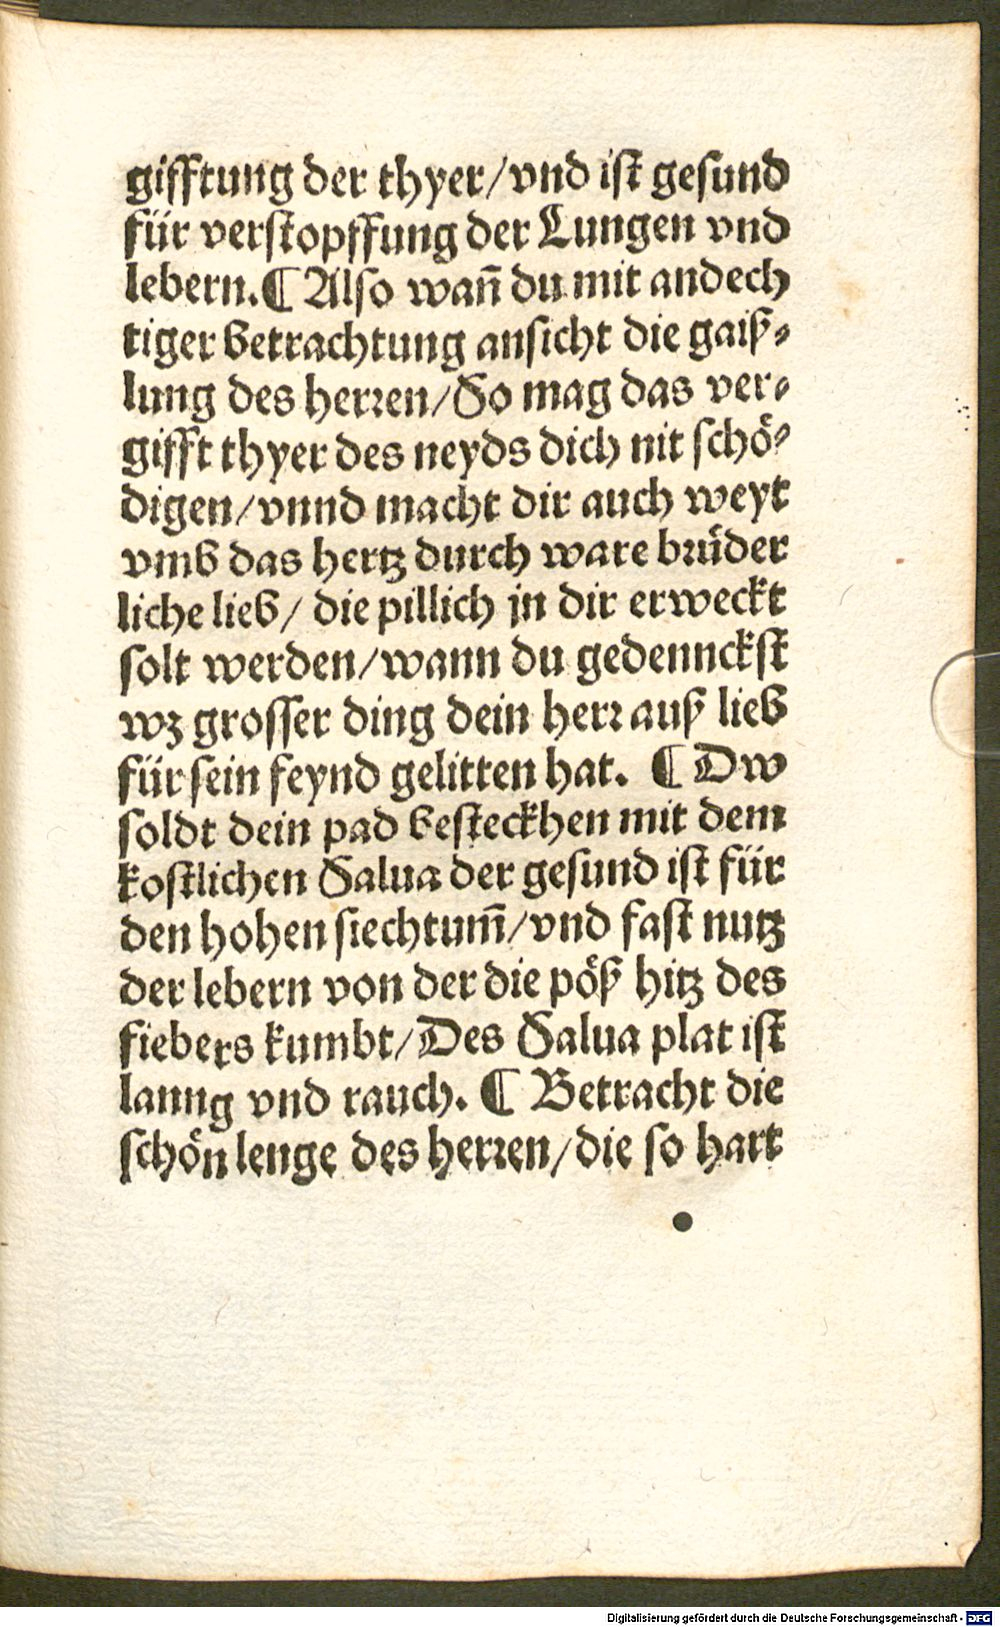 gifftung der thyer/vnd ist gesund
für verstopffung der Lungen vnd
lebern.¶ Also wañ du mit andech
tiger betrachtung ansicht die gaiß⸗
lung des herren/So mag das ver⸗
gifft thyer des neyds dich nit schö⸗
digen/vnnd macht dir auch weyt
vmb das hertz durch ware brůder
liche lieb/ die pillich jn dir erweckt
solt werden/wann du gedennckst
wz grosser ding dein herr auß lieb
für sein feynd gelitten hat. ¶ Dw
soldt dein pad besteckhen mit dem
kostlichen Salua der gesund ist für
den hohen siechtum̄/vnd fast nutz
der lebern von der die pöß hitz des
fiebers kumbt/Des Salua plat ist
lanng vnd rauch. ¶ Betracht die
schön lenge des herren/die so hart
Digitalisierung gefördert durch die Deutsche Forschungsgemeinschaft - DFG